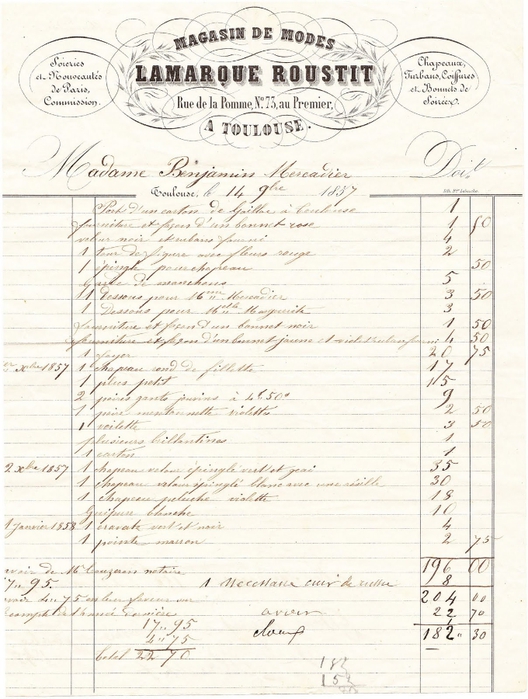 MAGASIN DE MODES
Soieries
et Nouveautés
de Paris,
Commission.
LAMARQUE ROUSTIT
Chapeaux,
Turbans, Coiffures
et Bonnets de
Soirées.
Rue de la Pomme, No. 73, au Premier,
A TOULOUSE.
Madame Benjamin Mercadier Doit
Toulouse, le 14 9bre 1857
Port d'un carton de Gaillac à Toulouse 1
fourniture et façon d'un bonnet rose 1 50
velour noir et rubans fourni 4
1 tour de figure avec fleurs rouge 2
1 épingle pour chapeau 50
de manchons 5
11 Dessous pour Mercadier 3 50
1 Dessous pour Marguerite 3
fourniture et façon d'un bonnet noir 1 50
fourniture et façon d'un bonnet jaune et violet 4 50
1 foyer 20 75
1857 1 chapeau rond de fillette 17
1 plus petit 15
2 paires gants jouvins à 4f 50c 9
1 paire violette 2 50
1 voilette 3 50
plusieurs brillantines 1
1 carton 1
2 Xbre 1857 1 chapeau velour épinglé vert et 35
1 chapeau velour épinglé blanc avec une résille 30
1 chapeau peluche violette 18
Guipure blanche 10
1 Janvier 1858 1 cravate vert et noir 4
1 pointe marron 2 75
196 00
notaire
95. 1 necessaire cuir de russie 8
204 00
22 70
17 95
4 75
182 30
total 22 70
182
152